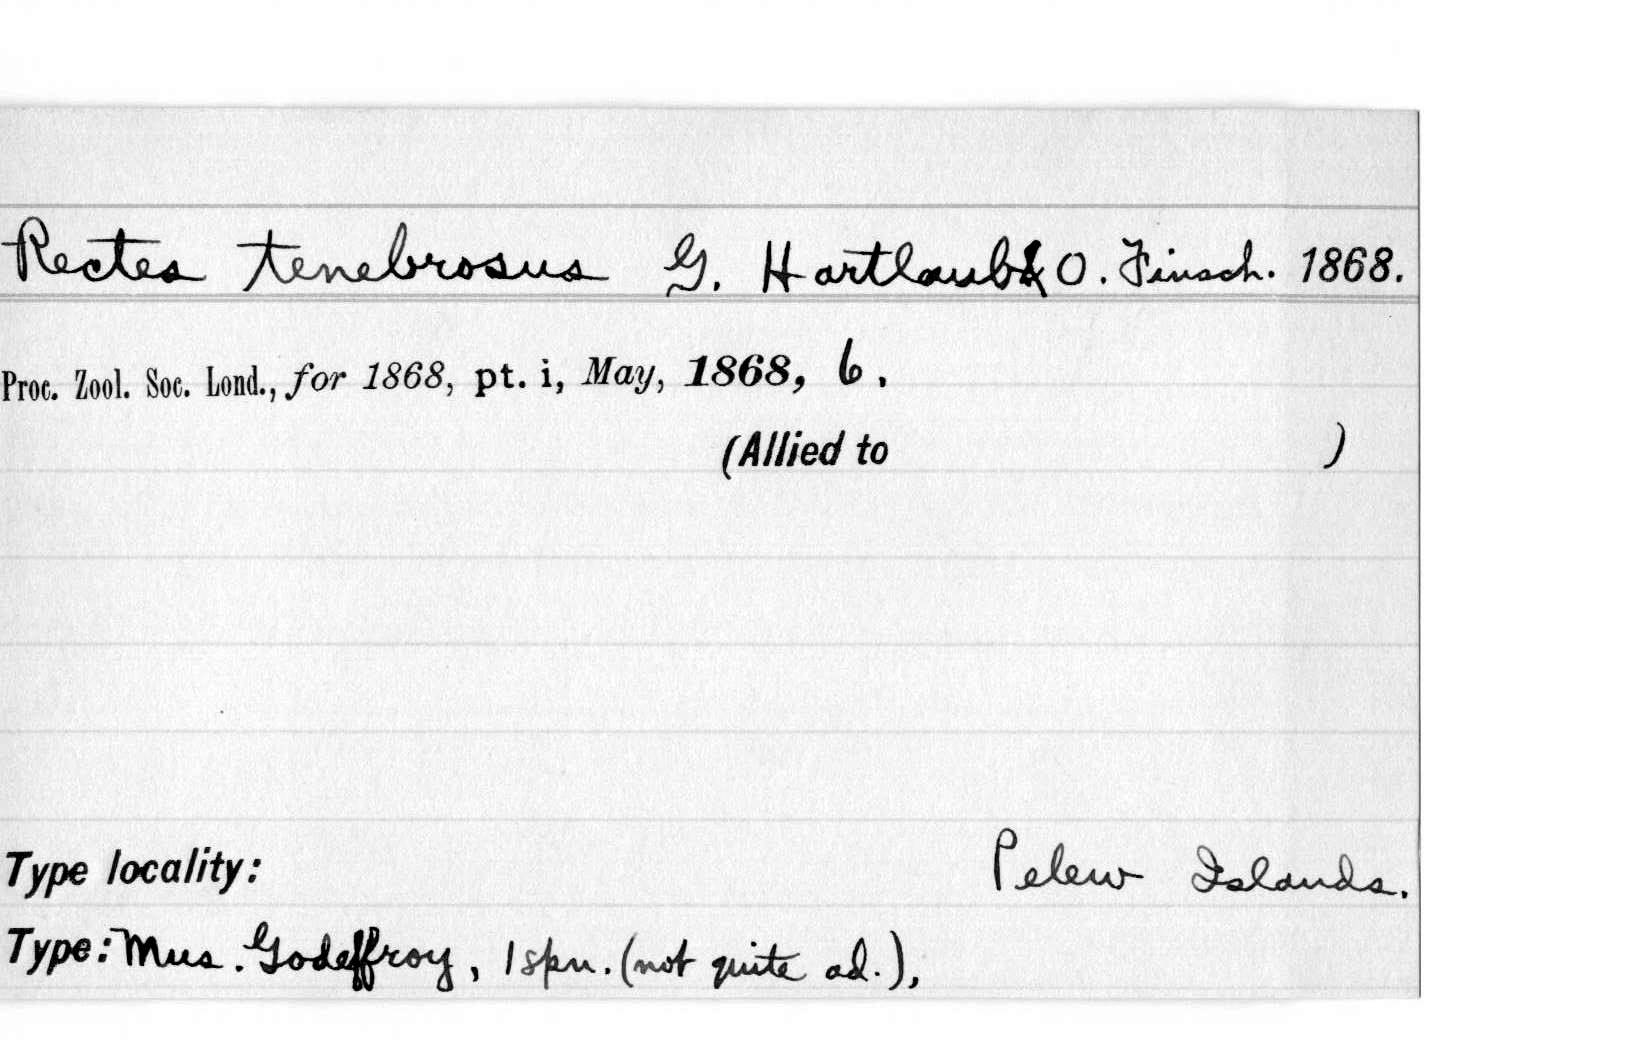 Rectes tenebrosus G. Hartlaub & O. Finsch. 1868.
Proc. Zool. Soc. Lond., for 1868, pt. i, May, 1868, 6.
(Allied to )
Type locality: Pelew Islands.
Type: Mus. Godeffroy, 1 spn. (not quite ad.),